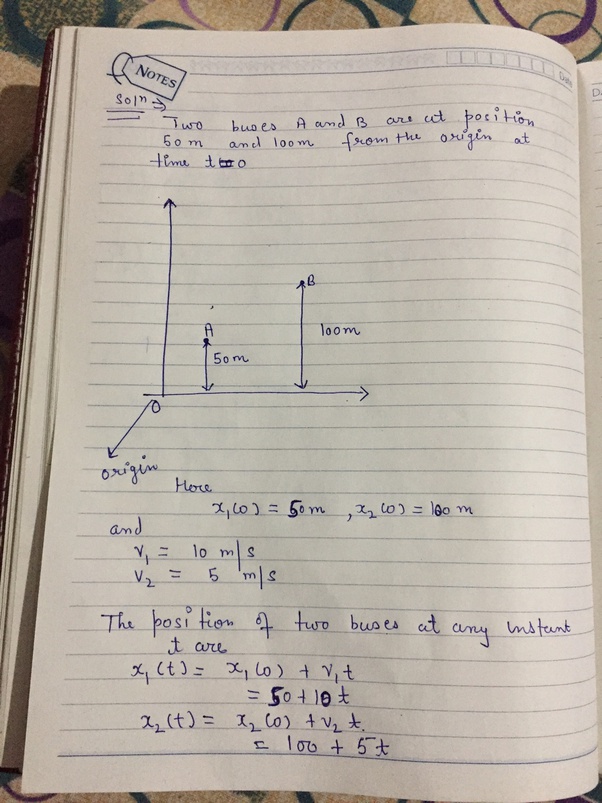 NOTES
Date
Da
Soln →
Two buses A and B are at position
50 m and 100m from the origin at
time t=0
B
A
100m
50m
O
origin
Here
x₁(0) = 50m , x₂(0) = 100 m
and
v₁ = 10 m/s
v₂ = 5 m/s
The position of two buses at any instant
t are
x₁(t) = x₁(0) + v₁t
= 50+10t
x₂(t) = x₂(0) + v₂t.
= 100 + 5t